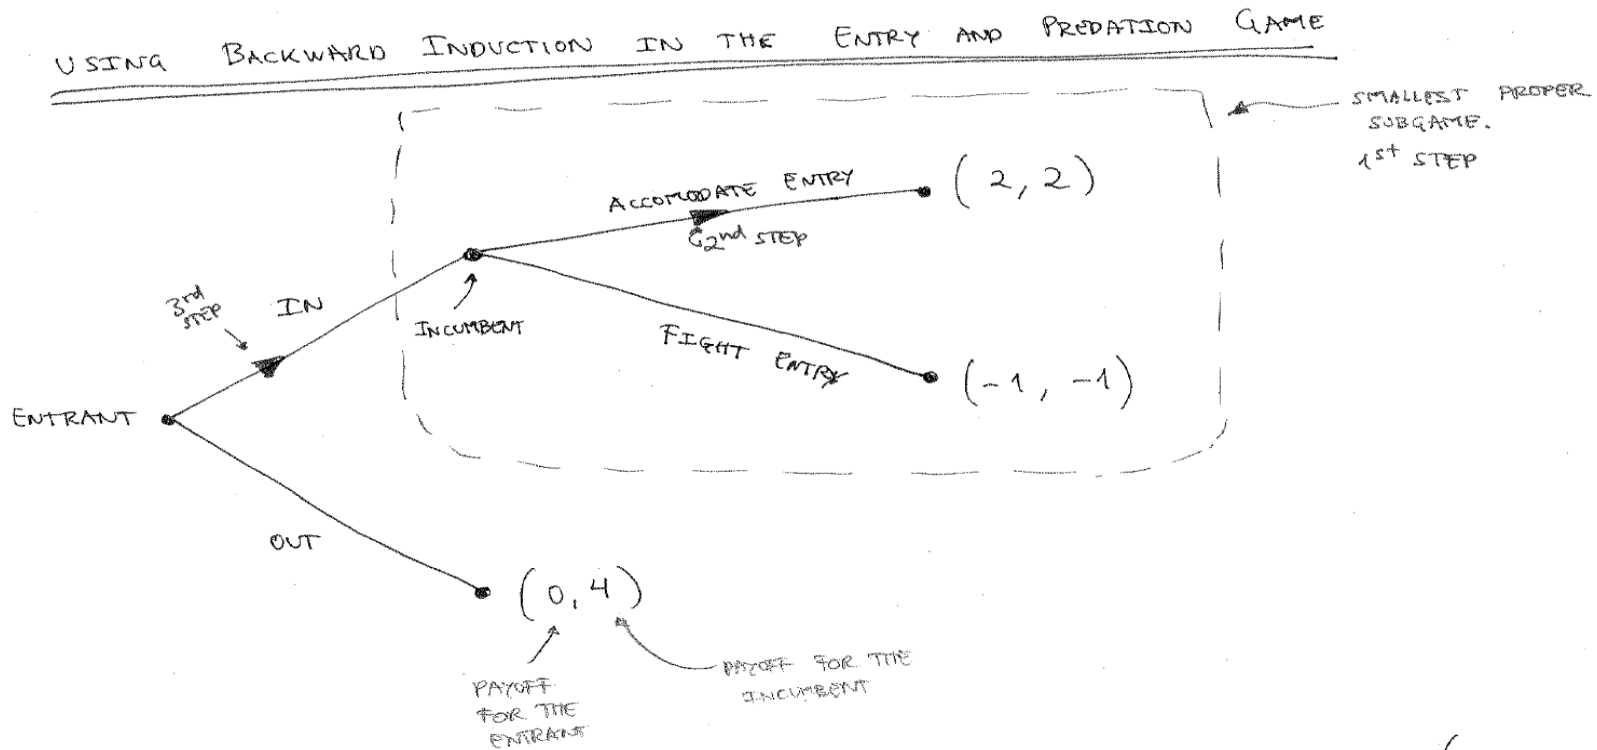 USING BACKWARD INDUCTION IN THE ENTRY AND PREDATION GAME
SMALLEST PROPER
SUBGAME.
1st STEP
ACCOMODATE ENTRY
(2, 2)
2nd STEP
3rd
STEP
IN
INCUMBENT
FIGHT ENTRY
(-1, -1)
ENTRANT
OUT
(0, 4)
PAYOFF
FOR THE
ENTRANT
PAYOFF FOR THE
INCUMBENT